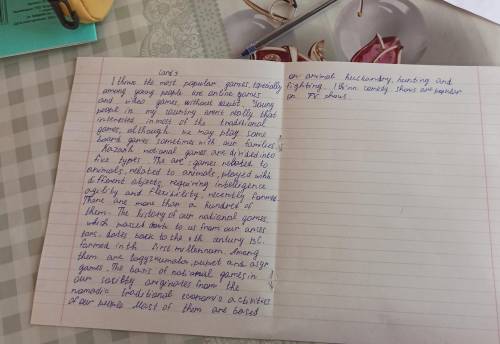 Card 3
I think the most popular games, especially
among young people are online games
and video games, without doubt. Young
people in my country arent really that
interested in most of the traditional
games, although we may play some
board games sometimes with our families.
Kazakh national games are divided into
five types. The are: games related to
animals, related to animals, played with
different objects, requiring intelligence
agility and flexibility, recently formed.
There are more than a hundred of
them. The history of our national games,
which passed down to us from our ances
tors, dates back to the 9th century BC.
formed in th first millennium. Among
them are togyzkumalak, puppet and asyr
games. The basis of national games in
our society originates from the
nomadic traditional economic activities
of our people. Most of them are based
on animal husbandry, hunting and
fighting. I think comedy shows are popular
on TV shows.